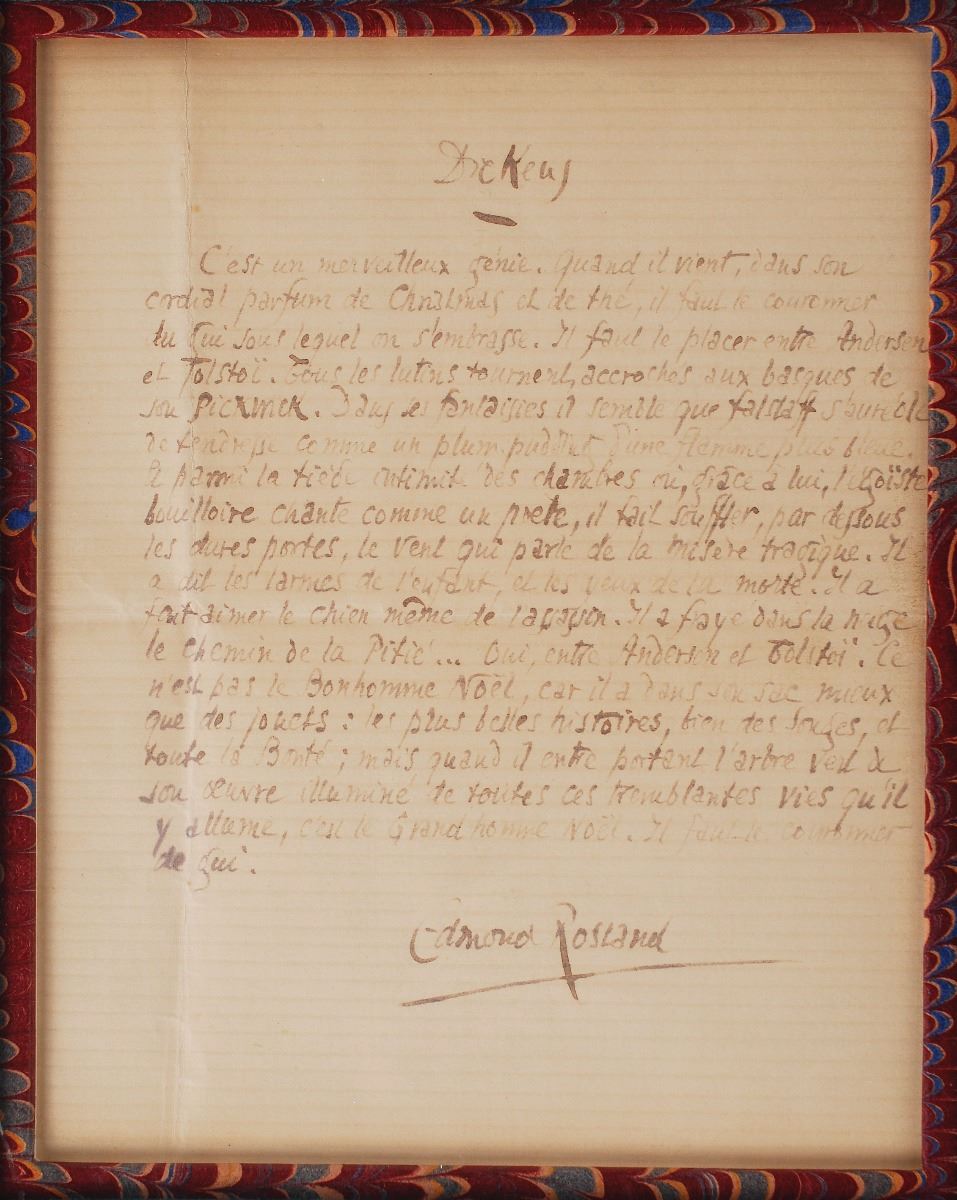 Dickens
C'est un merveilleux génie. Quand il vient, dans son
cordial parfum de Christmas et de thé, il faut le couronner
du gui sous lequel on s'embrasse. Il faut le placer entre Andersen
et Tolstoï. Tous les lutins tournent, accrochés aux basques de
son Pickwick. Dans ses fantaisies il semble que Falstaff s'auréole
de tendresse comme un plum pudding d'une flamme plus bleue.
Et parmi la tiède intimité des chambres où, grâce à lui, l'égoïste
bouilloire chante comme un poète, il fait souffler, par dessous
les dures portes, le vent qui parle de la misère tragique. Il
a dit les larmes de l'enfant, et les yeux de la morte. Il a
fait aimer le chien même de l'assassin. Il a frayé dans la neige
le chemin de la Pitié... Oui, entre Andersen et Tolstoï. Ce
n'est pas le Bonhomme Noël, car il a dans son sac mieux
que des jouets : les plus belles histoires, bien des songes, et
toute la Bonté ; mais quand il entre portant l'arbre vert de
son œuvre illuminé de toutes ces tremblantes vies qu'il
y allume, c'est le Grand homme Noël. Il faut le couronner
de gui.
Edmond Rostand